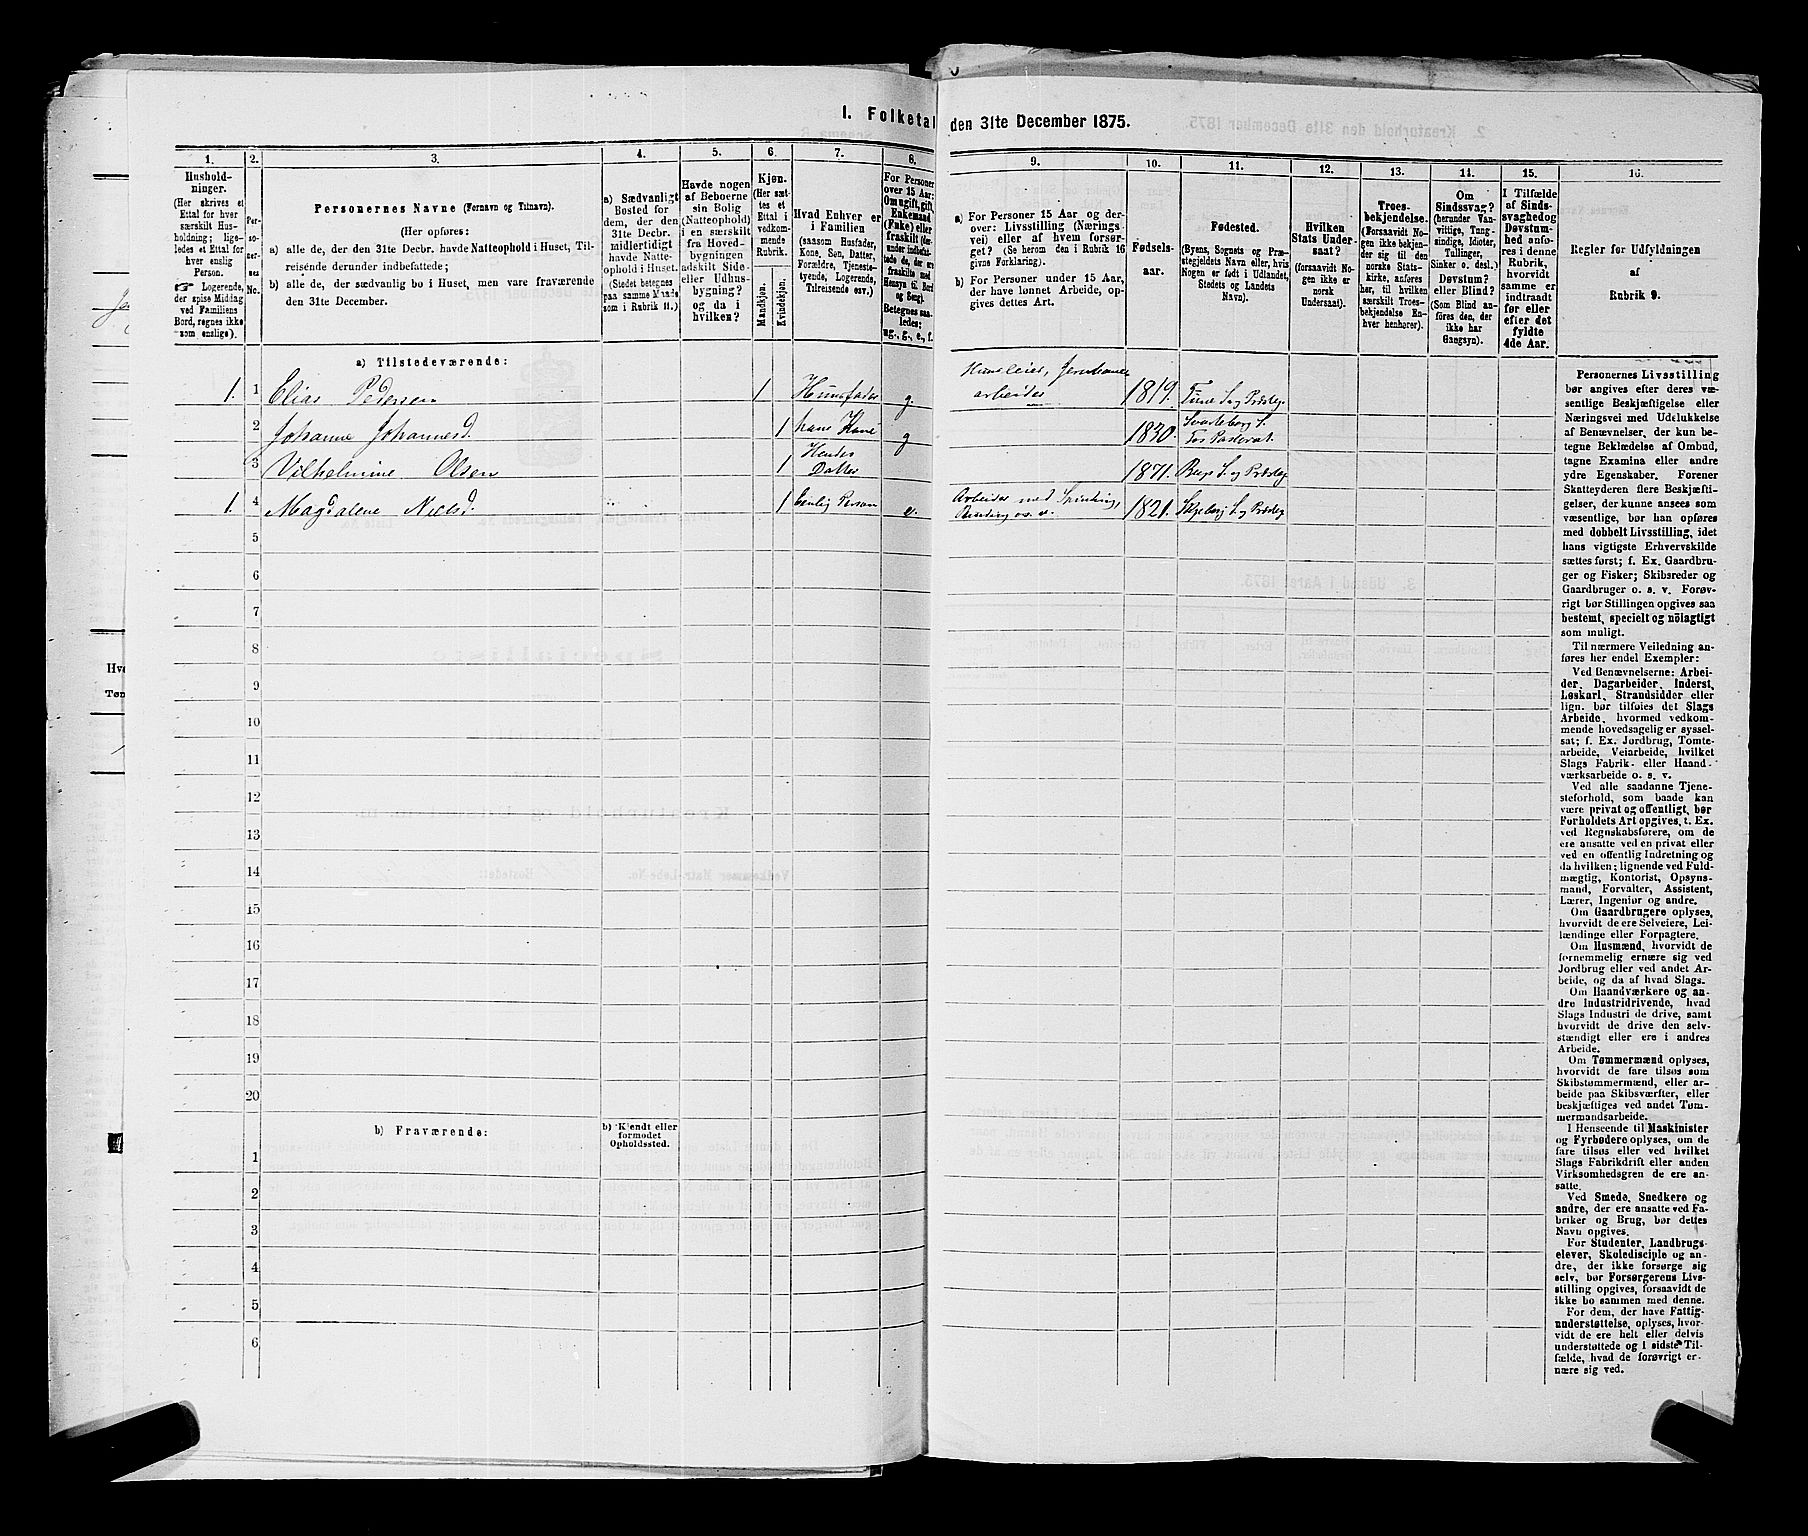 I. Folketal den 31te December 1875.
1.
Hushold-
ninger.
(Her skrives et
Ettal for hver
særskilt Hus-
holdning; lige-
ledes et Ettal for
hver enslig
Person.
☞ Logerende,
der spise Middag
ved Familiens
Bord, regnes ikke
som enslige).
2.
Per-
so-
ner-
nes
No.
3.
Personernes Navne (Fornavn og Tilnavn).
(Her opføres:
a) alle de, der den 31te Decbr. havde Natteophold i Huset, Til-
reisende derunder indbefattede;
b) alle de, der sædvanlig bo i Huset, men vare fraværende
den 31te December.
4.
a) Sædvanligt
Bosted for
dem, der den
31te Decbr.
midlertidigt
havde Natte-
ophold i Huset.
(Stedet betegnes
paa samme Maade
som i Rubrik 11.)
5.
Havde nogen
af Beboerne
sin Bolig
(Natteophold)
i en særskilt
fra Hoved-
bygningen
adskilt Side-
eller Udhus-
bygning?
og i da i
hvilken?
6.
Kjøn.
(Her sæt-
tes et
Ettal i
vedkom-
mende
Rubrik.
Mandkjøn.
Kvindekjøn.
7.
Hvad Enhver er
i Familien
(saasom Husfader,
Kone, Søn, Datter,
Forældre, Tjeneste-
tyende, Logerende,
Tilreisende osv.)
8.
For Personer
over 15 Aar:
Om ugift, gift,
Enkemand
(Enke) eller
fraskilt
Betegnes saa-
ledes:
ug., g., e., f.
9.
a) For Personer 15 Aar og der-
over: Livsstilling (Nærings-
vei) eller af hvem forsør-
get? (Se herom den i Rubrik 16
givne Forklaring).
b) For Personer under 15 Aar,
der have lønnet Arbeide, op-
gives dettes Art.
10.
Fødsels-
aar.
11.
Fødested.
(Byens, Sognets og Præ-
stegjeldets Navn eller, hvis
Nogen er født i Udlandet,
Stedets og Landets
Navn).
12.
Hvilken
Stats Under-
saat?
(forsaavidt No-
gen ikke er
norsk
Undersaat).
13.
Troes-
bekjendelse.
(Forsaavidt No-
gen ikke bekjen-
der sig til den
norske Stats-
kirke, anføres
her, til hvilken
særskilt Troes-
bekjendelse En-
hver henhører).
14.
Om
Sindssvag?
(herunder Van-
vittige, Tung-
sindige, Idioter,
Tullinger,
Sinker o. desl.)
Døvstum?
eller Blind?
(Som Blind an-
føres den, der
ikke har
Gangsyn).
15.
I Tilfælde
af Sinds-
svaghed og
Døvstum-
hed anfø-
res i denne
Rubrik,
hvorvidt
samme er
indtraadt
før eller
efter det
fyldte
4de Aar.
16.
Regler for Udfyldningen
af
Rubrik 9.
a) Tilstedeværende:
1. 1 Elias Pedersen 1 Huusfader g. Huusleier, Jernbane-
arbeider 1819. Tune S. og Præstegj.
2 Johanne Johannesd. 1 hans Kone g 1830. Svarteborg S.
Tos Pastorat.
3 Vilhelmine Olsen 1 Hendes
Datter 1871. S. og Præstegj.
1. 4 Magdalene Nielsd. 1 Enslig Person e. Arbeider med Spinding,
o.s.v. 1821. Skjeberg S. og Præstegj.
5
6
7
8
9
10
11
12
13
14
15
16
17
18
19
20
b) Fraværende:
b) Kjendt eller
formodet
Opholdssted.
1
2
3
4
5
6
Personernes Livsstilling
bør angives efter deres væ-
sentlige Beskjæftigelse eller
Næringsvei med Udelukkelse
af Benævnelser, der kun be-
tegne Beklædelse af Ombud,
tagne Examina eller andre
ydre Egenskaber. Forener
Skatteyderen flere Beskjæfti-
gelser, der kunne ansees som
væsentlige, bør han opføres
med dobbelt Livsstilling, idet
hans vigtigste Erhvervskilde
sættes først; f. Ex. Gaardbru-
ger og Fisker; Skibsreder og
Gaardbruger o. s. v. Forøv-
rigt bør Stillingen opgives saa
bestemt, specielt og nøiagtigt
som muligt.
Til nærmere Veiledning an-
føres her endel Exempler:
Ved Benævnelserne: Arbei-
der, Dagarbeider, Inderst,
Løskarl, Strandsidder eller
lign. bør tilføies det Slags
Arbeide, hvormed vedkom-
mende hovedsagelig er syssel-
sat; f. Ex. Jordbrug, Tomte-
arbeide, Veiarbeide, hvilket
Slags Fabrik- eller Haand-
værksarbeide o. s. v.
Ved alle saadanne Tjene-
steforhold, som baade kan
være privat og offentligt, bør
Forholdets Art opgives, t. Ex.
ved Regnskabsførere, om de
ere ansatte ved en privat eller
ved en offentlig Indretning og
da hvilken; lignende ved Fuld-
mægtig, Kontorist, Opsyns-
mand, Forvalter, Assistent,
Lærer, Ingeniør og andre.
Om Gaardbrugere oplyses,
hvorvidt de ere Selveiere, Lei-
lændinge eller Forpagtere.
Om Husmænd, hvorvidt de
fornemmelig ernære sig ved
Jordbrug eller ved andet Ar-
beide, og da af hvad Slags.
Om Haandværkere og an-
dre Industridrivende, hvad
Slags Industri de drive, samt
hvorvidt de drive den selv-
stændigt eller ere i andres
Arbeide.
Om Tømmermænd oplyses,
hvorvidt de fare tilsøs som
Skibstømmermænd, eller ar-
beide paa Skibsværfter, eller
beskjæftiges ved andet Tøm-
mermandsarbeide.
I Henseende til Maskinister
og Fyrbødere oplyses, om de
fare tilsøs eller ved hvilket
Slags Fabrikdrift eller anden
Virksomhedsgren de ere an-
satte.
Ved Smede, Snedkere og
andre, der ere ansatte ved Fa-
briker og Brug, bør dettes
Navn opgives.
For Studenter, Landbrugs-
elever, Skoledisciple og an-
dre, der ikke forsørge sig
selv, bør Forsørgerens Livs-
stilling opgives, forsaavidt de
ikke bo sammen med denne.
For dem, der have Fattig-
understøttelse, oplyses, hvor-
vidt de ere helt eller delvis
understøttede og i sidste Til-
fælde, hvad de forøvrigt er-
nære sig ved.